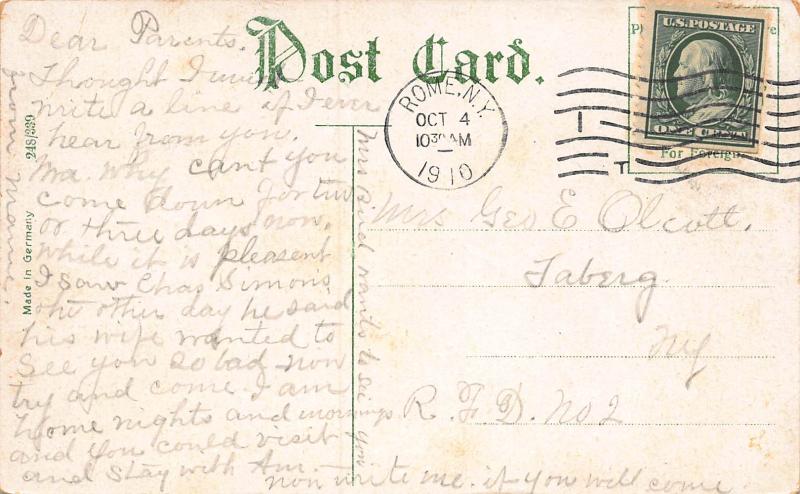 Post Card.
Dear Parents.
Thought I
write a line if I ever
hear from you.
Ma why can't you
come down for two
or three days now,
while it is pleasent
I saw Chas. Simons
the other day he said
his wife wanted to
see you so bad now
try and come. I am
home nights and mornings
and you could visit
and stay with Am.
now write me if you will come
wants to see you
from
Made in Germany
248/339
ROME, N.Y.
OCT 4
1030 AM
1910
U.S. POSTAGE
ONE CENT
For Foreign
Mrs Geo E Olcott.
Taberg
NY
R. F. D. No 2